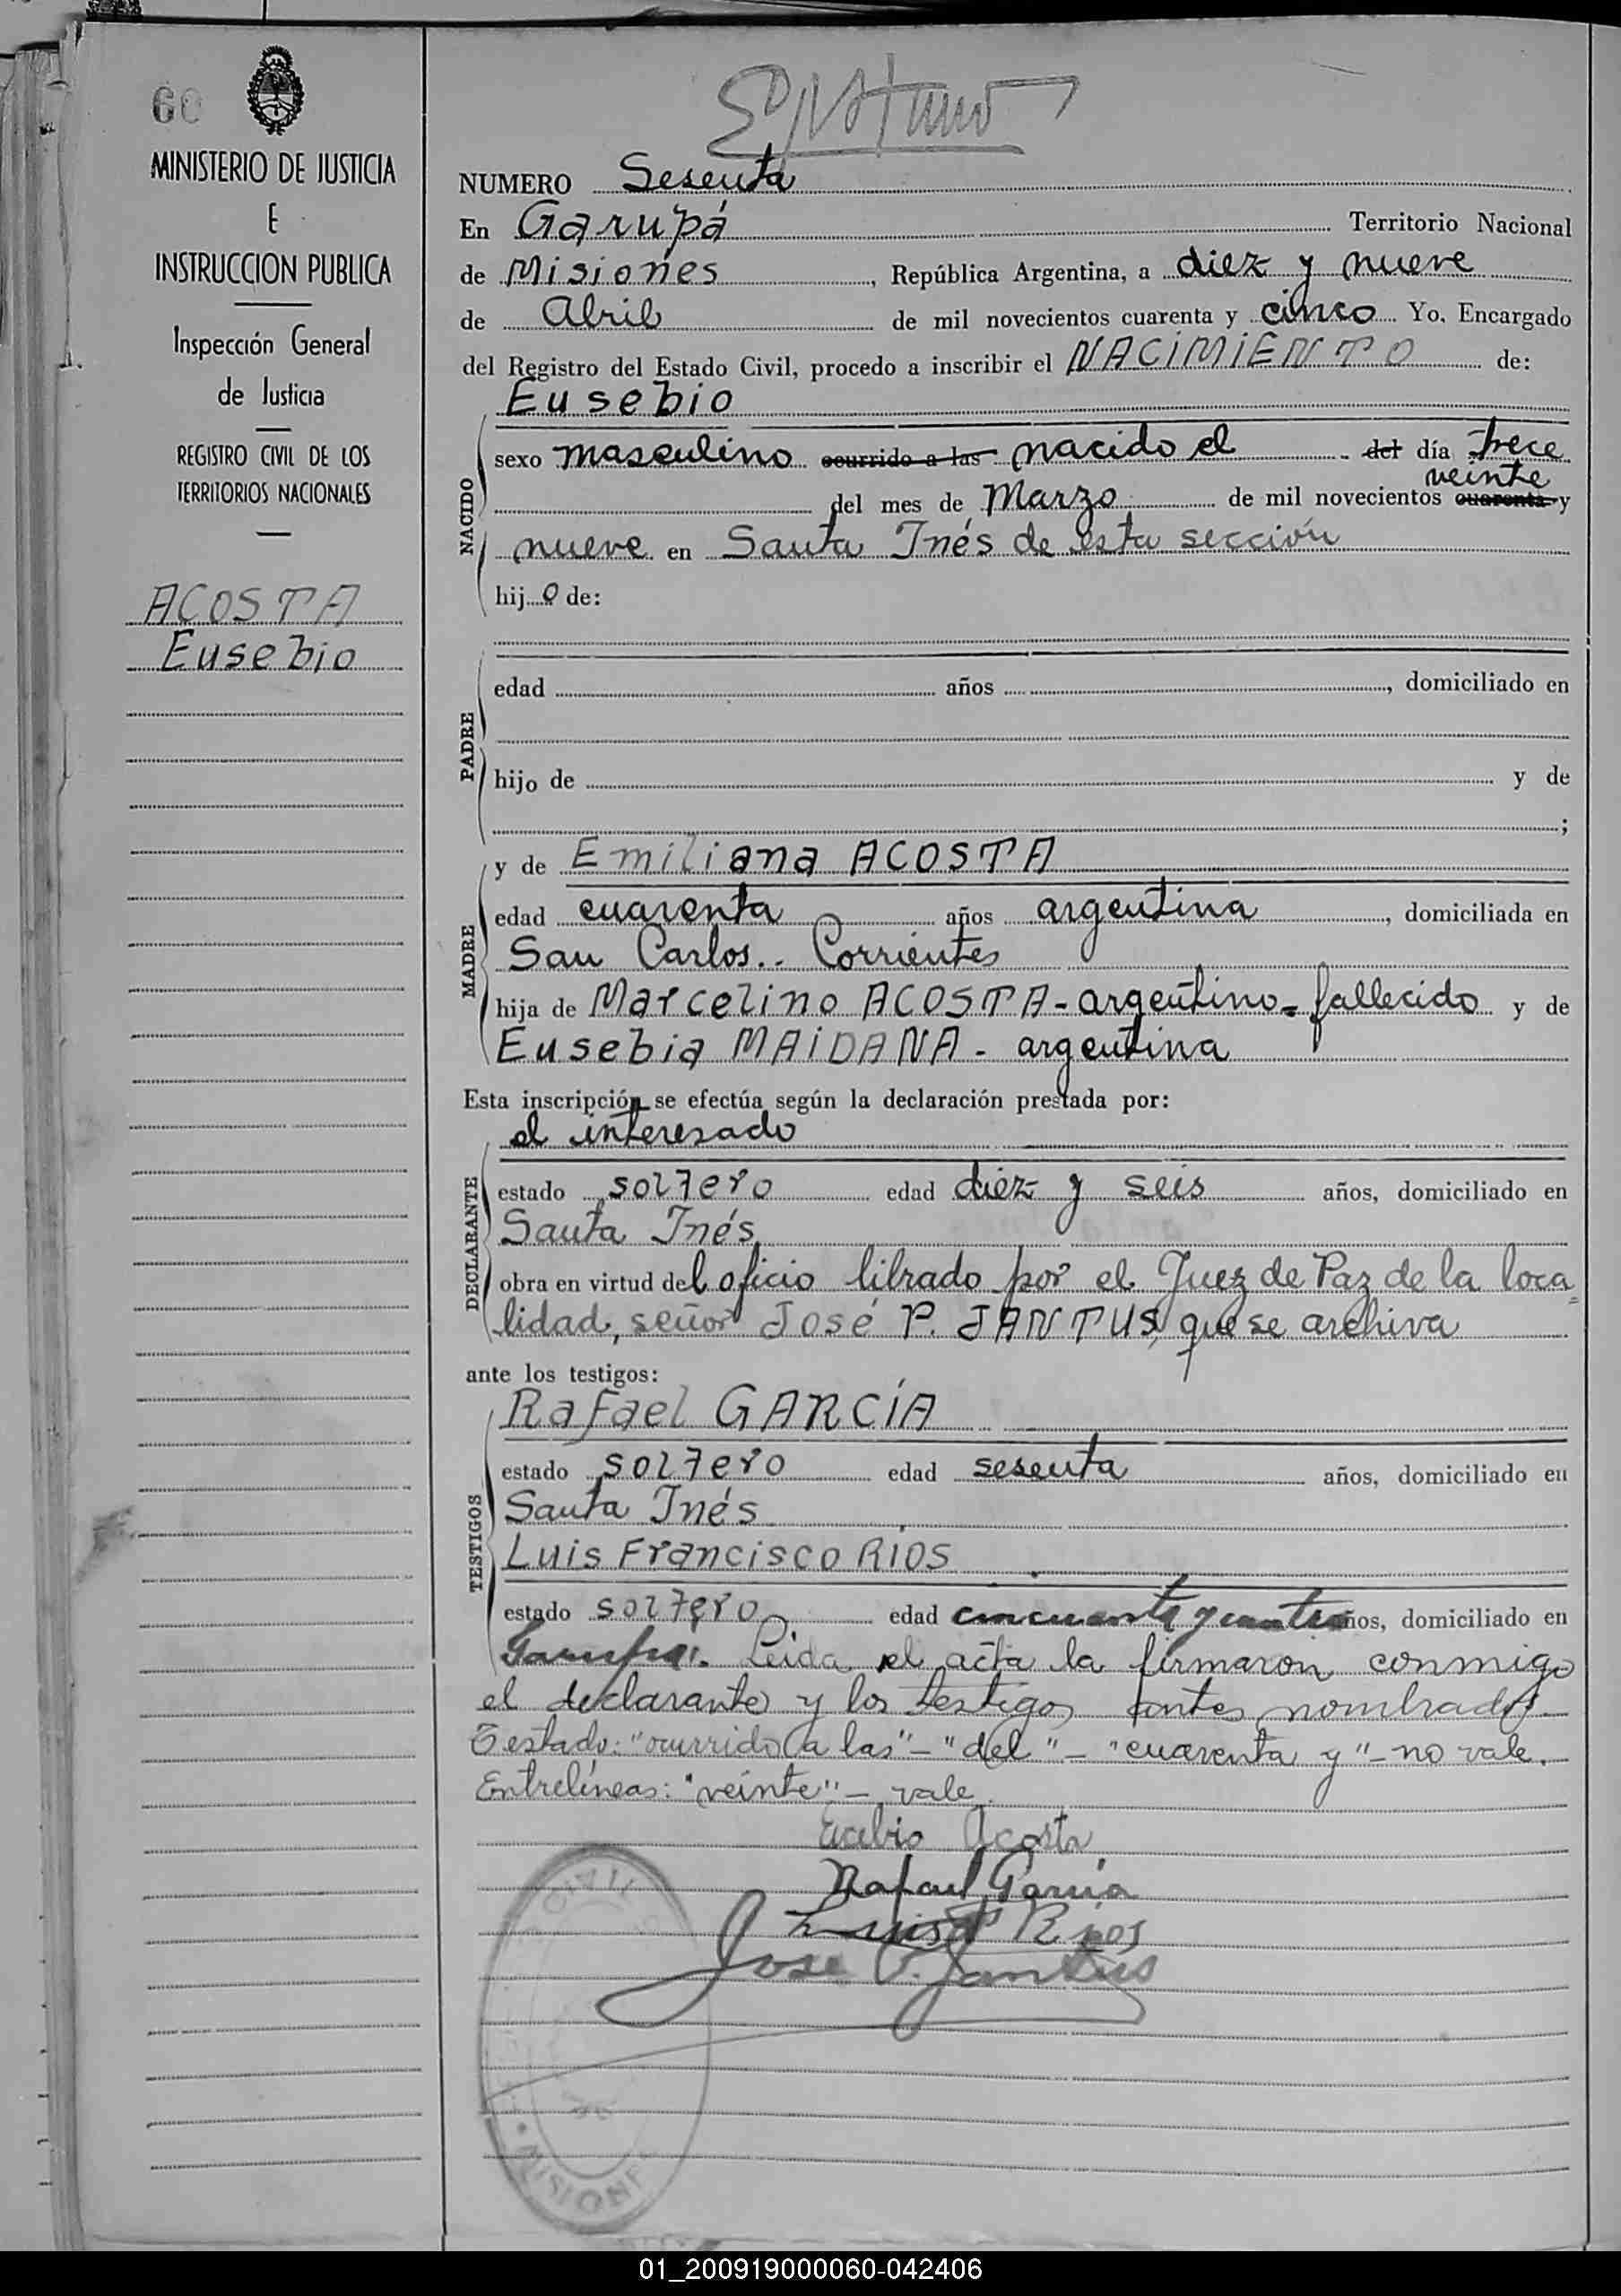 60
MINISTERIO DE JUSTICIA
E
INSTRUCCION PUBLICA
Inspección General
de Justicia
REGISTRO CIVIL DE LOS
TERRITORIOS NACIONALES
ACOSTA
Eusebio
NUMERO Sesenta
En Garupá Territorio Nacional
de Misiones, República Argentina, a diez y nueve
de Abril de mil novecientos cuarenta y cinco Yo, Encargado
del Registro del Estado Civil, procedo a inscribir el NACIMIENTO de:
Eusebio
NACIDO
sexo masculino ocurrido a las nacido el del día trece
veinte
del mes de Marzo de mil novecientos cuarenta y
nueve en Santa Inés de esta sección
hijo de:
PADRE
edad años , domiciliado en
hijo de y de
;
MADRE
y de Emiliana ACOSTA
edad cuarenta años argentina, domiciliada en
San Carlos.. Corrientes
hija de Marcelino ACOSTA - argentino - fallecido y de
Eusebia MAIDANA - argentina
Esta inscripción se efectúa según la declaración prestada por:
DECLARANTE
el interesado
estado soltero edad diez y seis años, domiciliado en
Santa Inés
obra en virtud del oficio librado por el Juez de Paz de la loca=
lidad, señor José P. JANTUS, que se archiva
ante los testigos:
TESTIGOS
Rafael GARCÍA
estado soltero edad sesenta años, domiciliado en
Santa Inés
Luis Francisco RIOS
estado soltero edad cincuenta y cuatro años, domiciliado en
Garupá. Leída el acta la firmaron conmigo
el declarante y los testigos antes nombrados.
Testado: "ocurrido a las" - "del" - "cuarenta y" - no vale.
Entrelíneas: "veinte" - vale.
Eusebio Acosta
Rafael Garcia
Luis F Rios
Jose P. Jantus
MISIONES
01_200919000060-042406